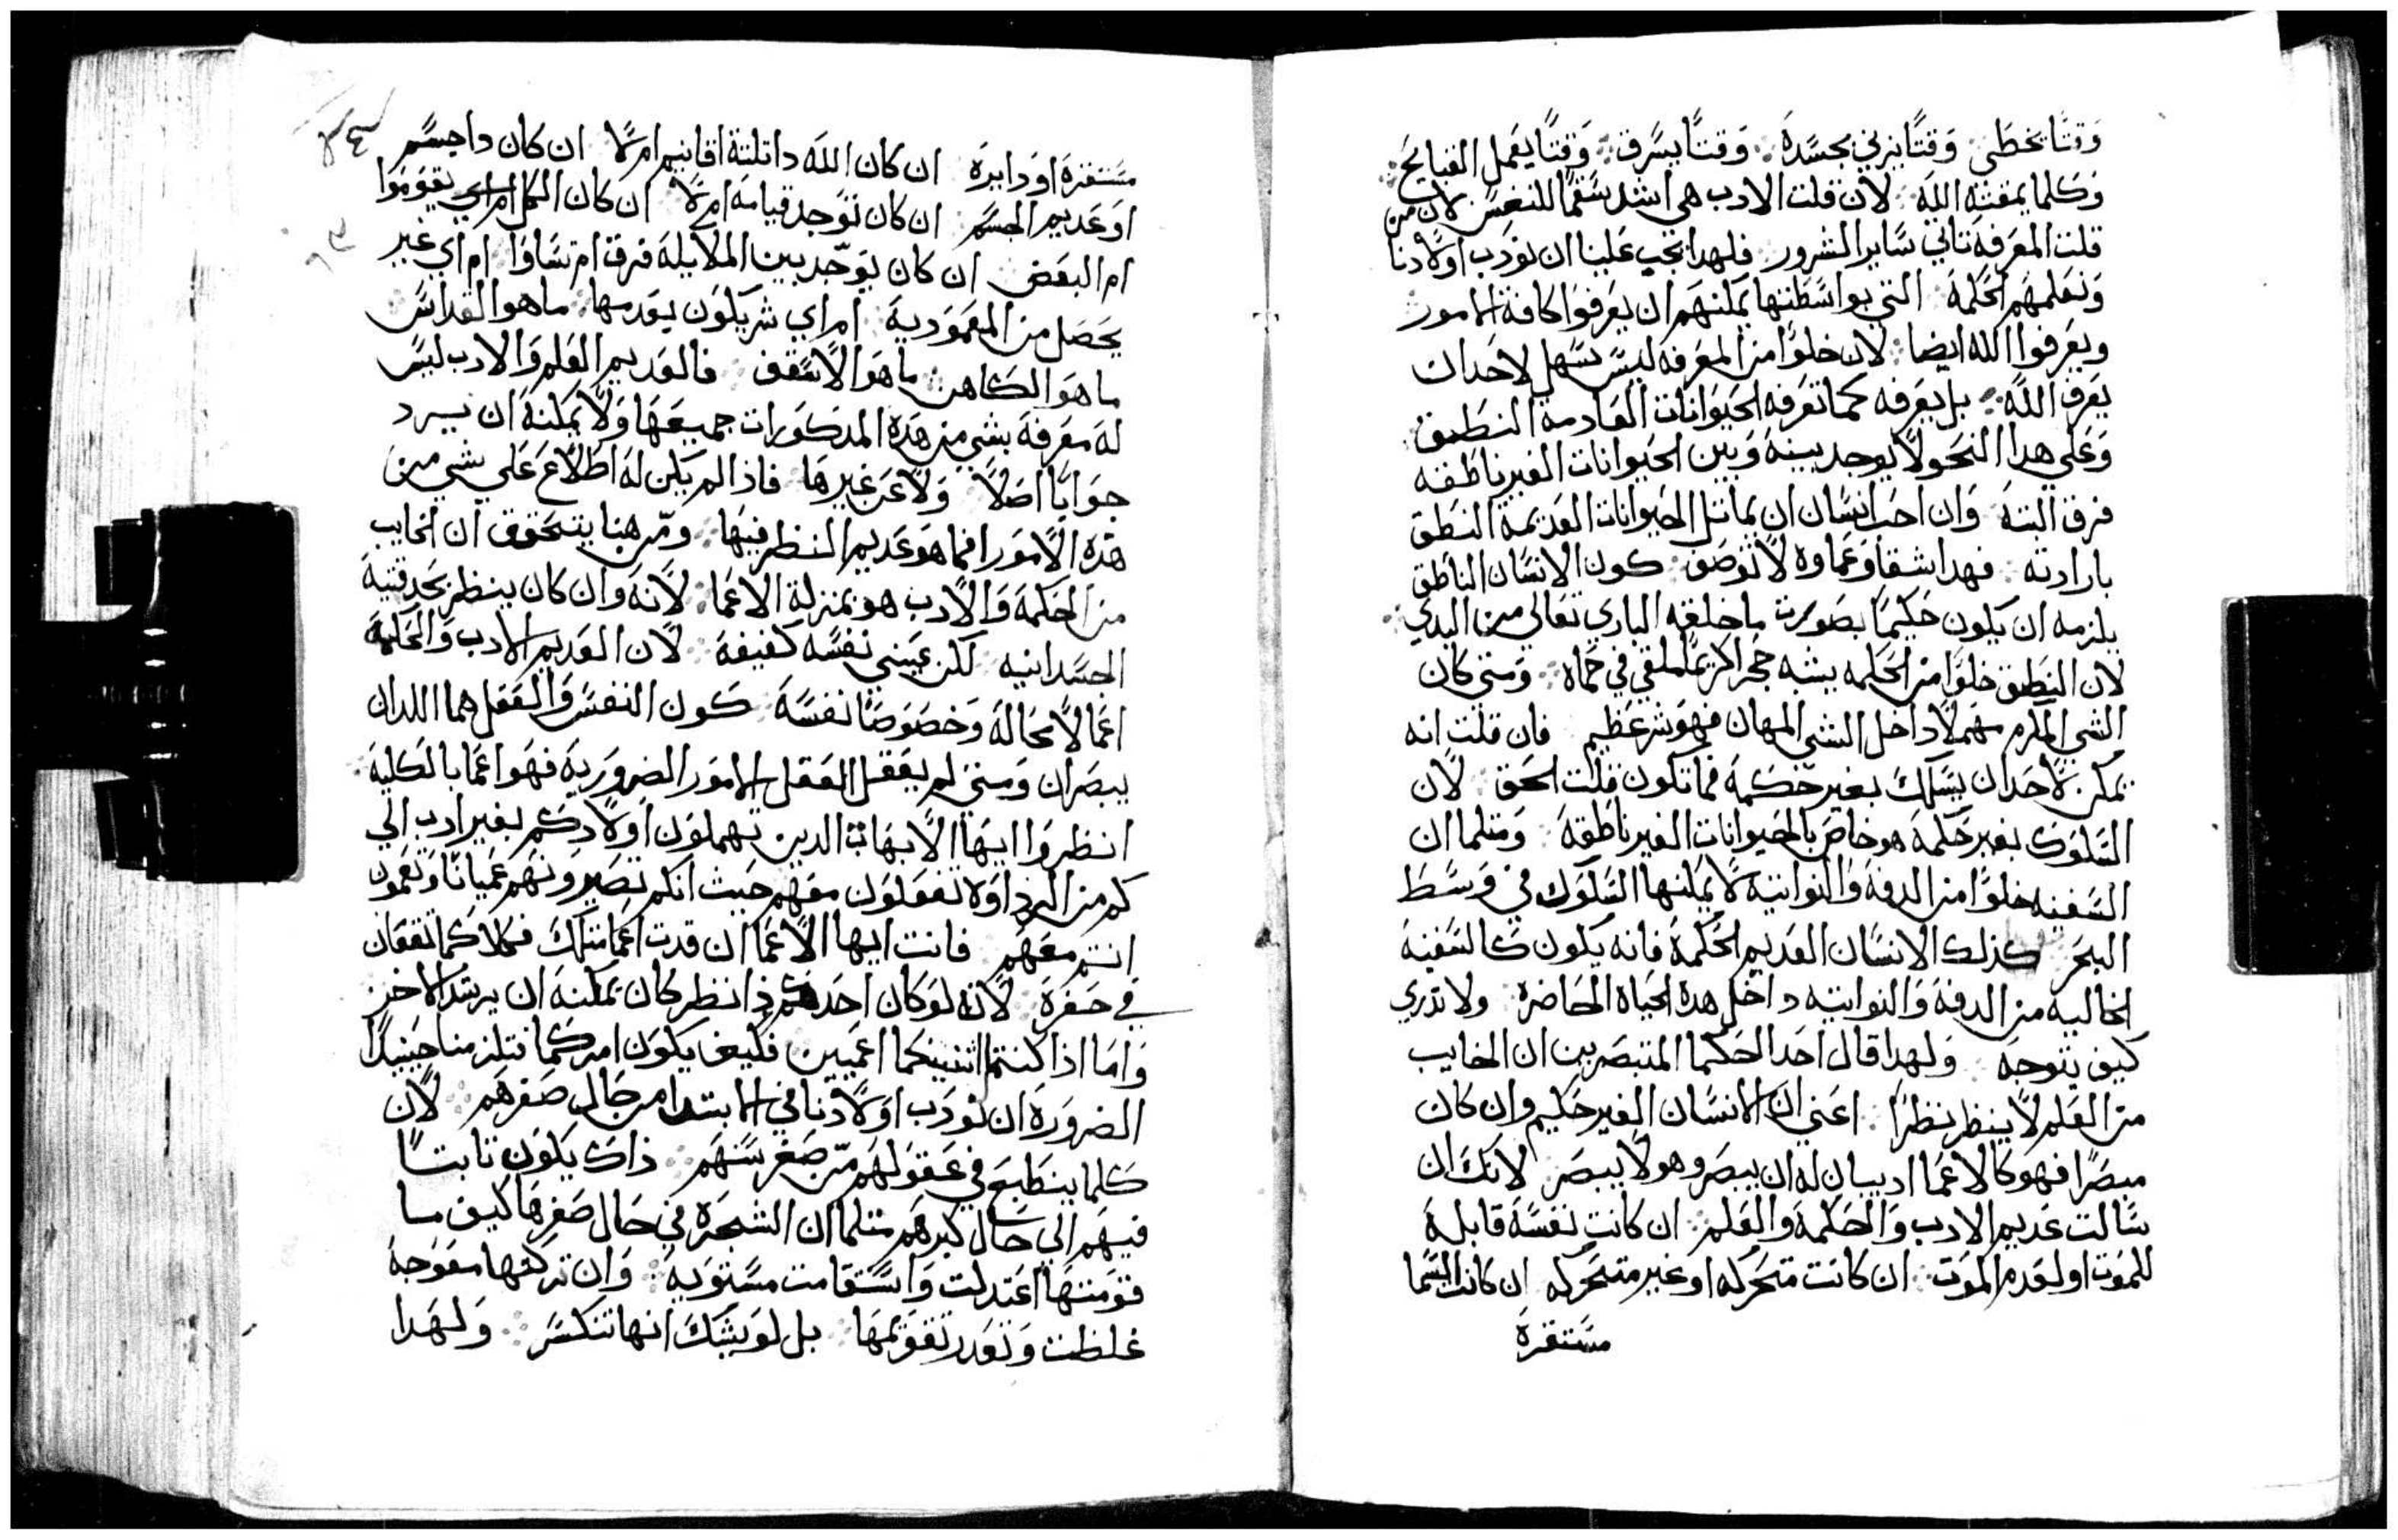 وَقتًا يخطي وَقتًا يزني بجسَدهَ وَقتًا يسَرق وَقتًا يعَمل القبايح
وَكلما يمقته اللهَ لان قلت الادب هي اشد سَقمًا للنفسَ لان من
قلت المعَرفهَ تاتي سَاير الشرور فلهدا يجب عَلينا ان نودَب اولادنا
وَنعَلمهَم الحكمهَ التي بواسَطتها يمكنهَم ان يعَرفوا كافة الامور
ويعَرفوا الله ايضا لان خلوًا من المعَرفه ليسَ يسَهل لاحَد ان
يعَرف اللهَ بل يعَرفه كما تعَرفه الحيَوانات العَادمة النطق
وَعَلي هدا النحو لا يوجد بينهَ وَبين الحيَوانات الغير ناطقه
فرق البتهَ وَان احَب انسَان ان يماتل الحيَوانات العَديمة النطَق
بارادته فهدا شقا وَعَماوه لا توصَف كون الانسَان الناطَق
يلزمه ان يكون حَكيمًا بصَورت ما خلقه الباري تعَالي من البدي
لان النطَق خلوًا من الحَكمه يشبه حجر اكريمًا ملقي في حماه وَمتي كان
الشي المكرم مهَملًا داخل الشي المهان فهوَ شر عَظيم فان قلت انه
يمكن لاحَد ان يسَلك بغير حَكمهَ فما تكون قلت الحَق لان
السَلوَك بغير حَكمهَ هو خاصَ بالحيَوانات الغير ناطَقهَ وَمتلما ان
السَفينه خلوًا من الدفهَ وَالنواتيه لا يمكنها السَلوك في وَسَطَ
البحَر كذلك الانسَان العَديم الحكمهَ فانه يكون كالسَفينهَ
الخاليه من الدفهَ وَالنواتيه داخل هده الحيَاة الحَاضرة ولا تدري
كيف تتوجهَ وَلهدا قال احَد الحَكما المتبصَرين ان الخايب
من العَلم لا ينظر نظرًا اعَني ان الانسَان الغير حَكيم وان كان
مبصَرًا فهو كالاعَما اد يبان له ان يبصَر وهو لا يبصَر لانكَ ان
سَالت عَديم الادب وَالحَكمهَ والعَلم ان كانت نفسَهَ قابلهَ
للموَت او لعَدم الموَت ان كانت متحَركه او غير متحَركه ان كانت السَما
مسَتقرةَ
مسَتقرةَ اوَ دَايرةَ ان كان اللهَ دا تلتة اقانيم ام لا ان كان دا جسَم
اوَ عَديم الجسَم ان كان توَجد قيامهَ ام لا ان كان الكل يقوَموَا
ام البعَض ان كان يوَجَد بين الملايكة فرق ام تسَاوَا ام اي غير
يحَصَل من المعَموَديهَ ام اي شر يكوَن بعَدمها ما هو القداسَ
ما هوَ الكاهن ما هوَ الاسَقف فالعَديم العَلم وَالادب ليسَ
لهَ معَرفهَ بشي من هَدة المدكوَرات جميعَهَا وَلا يمكنهَ ان يرد
جوَابًا اصَلًا وَلا عَن غيرهَا فاذا لم يكن لهَ اطَلاعَ عَلي شي من
هدة الاموَر افما هوَ عَديم النظر فيهَا وَمن هنا يتحَقق ان الخايب
من الحَكمهَ وَالادب هو بمنزلة الاعَما لانهَ وَان كان ينظر بحَدقتيهَ
الجسَدانيه لكن عَيني نفسَه كفيفهَ لان العَديم الادب وَالحَكمهَ
اعَما لا محَالهَ وَخصَوَصًا نفسَهَ كون النفسَ وَالعَقل هما اللدان
يبصَران وَمتي لم يعَقل العَقل الاموَر الضروَريهَ فهَوَ اعَما بالكليهَ
انظروَا ايهَا الابهَات الدين تهملوَن اوَلادكم بغير ادب الي
كم من الرداوَة تفعَلوَن معَهم حيَث انكم تصَيروَنهَم عَميانًا وَتعَموَن
انتم معَهَم فانت ايها الاعَما ان قدت اعَما متلكَ فكلاكما تقعَان
في حَفرةَ لانه لوَ كان احَدكم ذا نظر كان يمكنهَ ان يرشد الاخر
وَاما اذا كنتما اثنينكما اعَميين فكيف يكوَن امركما فتلزمنا حيَنيدًا
الضروَرةَ ان نوَدَب اوَلادنا في الابتدا من حَال صَغرهَم لان
كلما ينطَبعَ في عَقوَلهَم من صَغر سَنهَم ذاك يكوَن تابتًا
فيهَم الي حَال كبرهَم متلما ان الشجَرةَ في حَال صَغرهَا كيف ما
قوَمتهَا اعَتدلت وَاسَتقامت مسَتوَيهَ وَان تركتها معَوَجهَ
غلظت وَتعَدر تقوَيمهَا بل لوَ يشكَ انها تنكسَر وَلهَدا